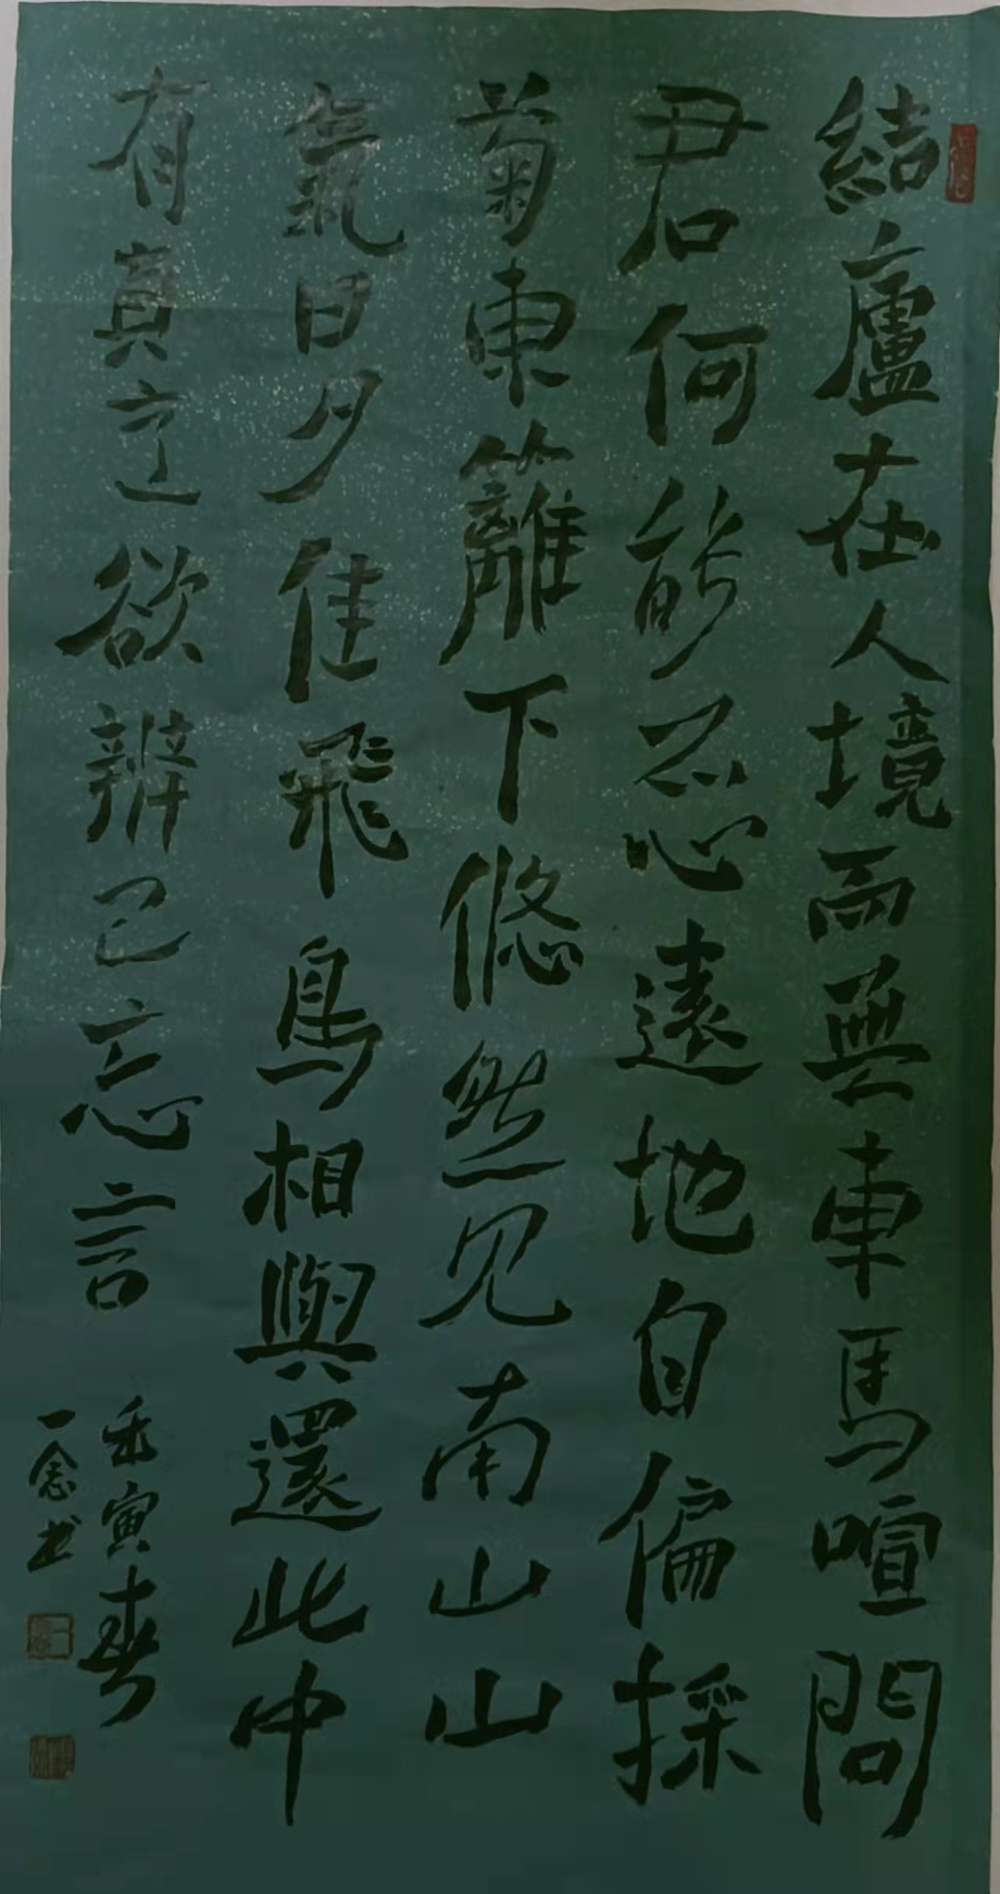 結廬在人境而無車馬喧問
君何能尔心遠地自偏採
菊東籬下悠然见南山山
氣日夕佳飛鳥相與還此中
有真意欲辨已忘言
壬寅春
一念书